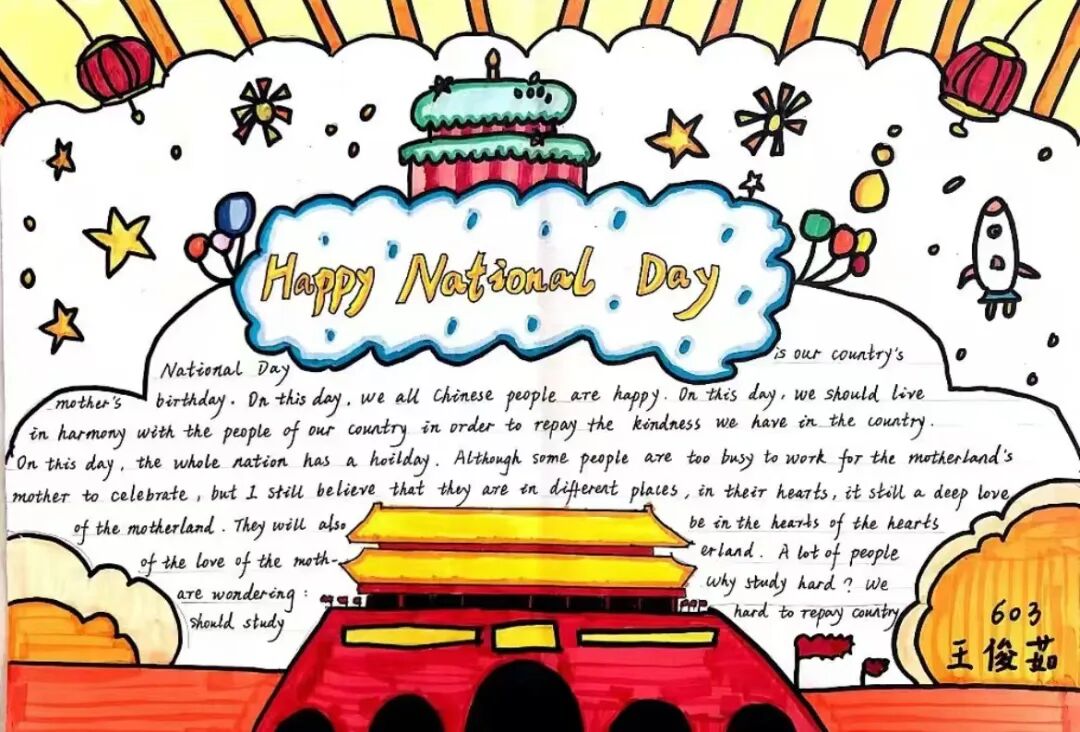 Happy National Day
National Day is our country's
mother's birthday. On this day, we all Chinese people are happy. On this day, we should live
in harmony with the people of our country in order to repay the kindness we have in the country.
On this day, the whole nation has a hoilday. Although some people are too busy to work for the motherland's
mother to celebrate, but I still believe that they are in different places, in their hearts, it still a deep love
of the motherland. They will also be in the hearts of the hearts
of the love of the moth- erland. A lot of people
are wondering: why study hard? We
should study hard to repay country
603
王俊茹